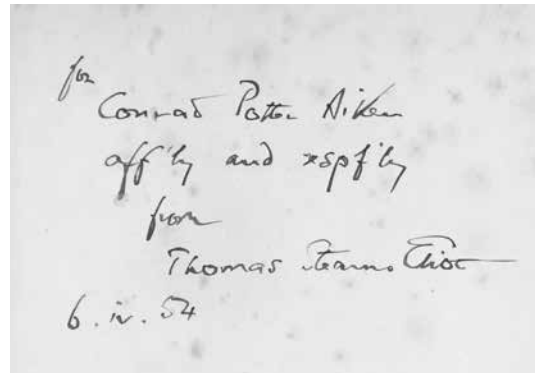 for
Conrad Potter Aiken
aff'ly and rspf'ly
from
Thomas Stearns Eliot
6.iv.54